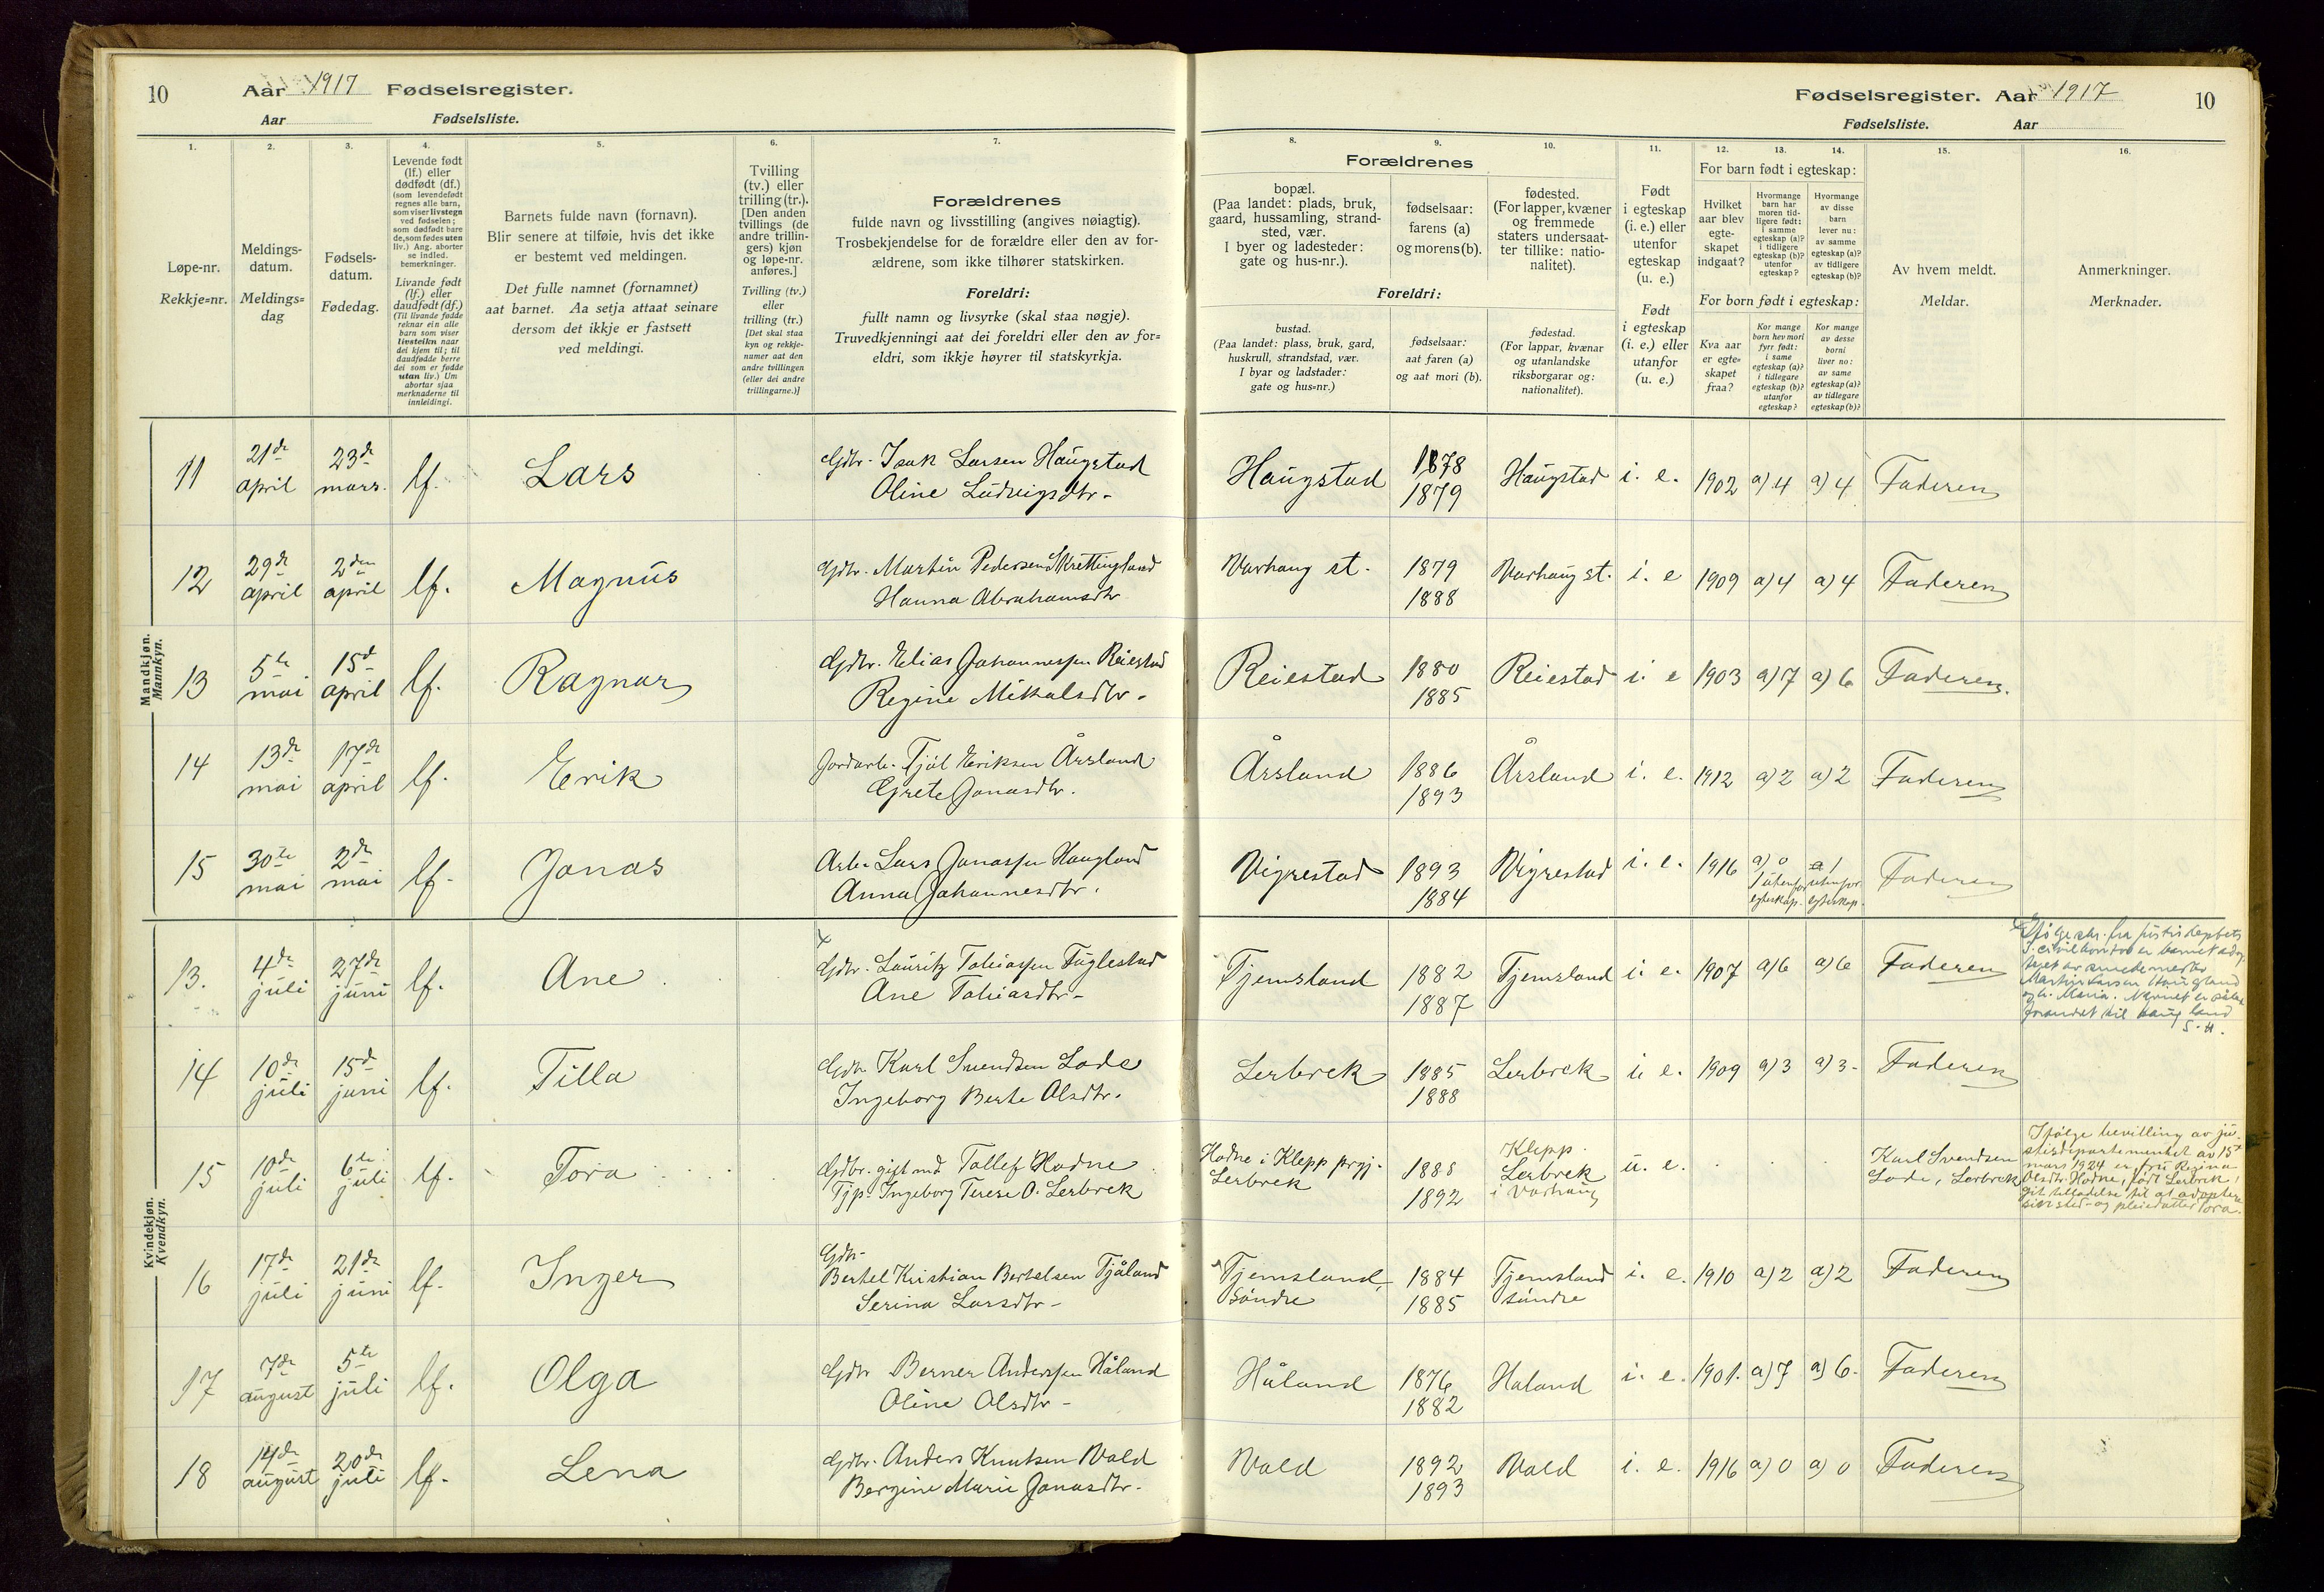 10
Aar 1917 Fødselsregister.
Aar
Fødselsliste.
Fødselsregister. Aar 1917
10
Fødselsliste.
Aar
1.
Løpe-nr.
Rekkje=nr.
2.
Meldings-
datum.
Meldings=
dag
3.
Fødsels-
datum.
Fødedag.
4.
Levende født
(lf.) eller
dødfødt (df.)
(som levendefødt
regnes alle barn,
som viser livstegn
ved fødselen;
som dødfødt bare
de, som fødes uten
liv.) Ang. aborter
se indled.
bemerkninger.
Livande født
(lf.) eller
daudfødt (df.)
(Til livande fødde
reknar ein alle
barn som viser
livsteikn naar
dei kjem til; til
daudfødde berre
dei som er fødde
utan liv.) Um
abortar sjaa
merknaderne til
innleidingi.
5.
Barnets fulde navn (fornavn).
Blir senere at tilføie, hvis det ikke
er bestemt ved meldingen.
Det fulle namnet (fornamnet)
aat barnet. Aa setja attaat seinare
dersom det ikkje er fastsett
ved meldingi.
6.
Tvilling
(tv.) eller
trilling (tr.).
[Den anden
tvillings (de
andre trillin-
gers) kjøn
og løpe-nr.
anføres.]
Tvilling (tv.)
eller
trilling (tr.)
[Det skal staa
kyn og rekkje-
numer aat den
andre tvillingen
(eller dei andre
trillingarne.)]
7.
Forældrenes
fulde navn og livsstilling (angives nøiagtig).
Trosbekjendelse for de forældre eller den av for-
ældrene, som ikke tilhører statskirken.
Foreldri:
fullt namn og livsyrke (skal staa nøgje).
Truvedkjenningi aat dei foreldri eller den av for=
eldri, som ikkje høyrer til statskyrkja.
Forældrenes
8.
bopæl.
(Paa landet: plads, bruk,
gaard, hussamling, strand-
sted, vær.
I byer og ladesteder:
gate og hus-nr.).
Foreldri:
bustad.
(Paa landet: plass, bruk, gard,
huskrull, strandstad, vær.
I byar og ladstader:
gate og hus=nr.)
9.
fødselsaar:
farens (a)
og morens (b).
fødselsaar:
aat faren (a)
og aat mori (b).
10.
fødested.
(For lapper, kvæner
og fremmede
staters undersaat-
ter tillike: natio-
nalitet).
fødestad.
(For lappar, kvænar
og utanlandske
riksborgarar og:
nationalitet).
11.
Født
i egteskap
(i. e.) eller
utenfor
egteskap
(u. e.)
Født
i egteskap
(i. e.) eller
utanfor
(u. e.)
12.
13.
14.
For barn født i egteskap:
Hvilket
aar blev
egte-
skapet
indgaat?
Hvormange
barn har
moren tid-
ligere født:
i samme
egteskap (a)?
i tidligere
egteskap (b)?
utenfor
egteskap?
Hvormange
av disse
barn
lever nu:
av samme
egteskap (a)?
av tidligere
egteskap (b)?
For born født i egteskap:
Kva aar
er egte=
skapet
fraa?
Kor mange
born hev mori
fyrr født:
i same
egteskap (a)?
i tidlegare
egteskap (b)?
utanfor
egteskap?
Kor mange
av desse
borni
liver no:
av same
egteskap (a)?
av tidlegare
egteskap (b)?
15.
Av hvem meldt.
Meldar.
16.
Anmerkninger.
Merknader.
Mandkjøn.
Mannkyn.
11 21de april 23de mars. lf. Lars Gdbr. Isak Larsen Haugstad
Oline Ludvigsdtr. Haugstad 1878
1879 Haugstad i. e. 1902 a) 4 a) 4 Faderen
12 29de april 2den april lf. Magnus Gdbr. Martin Pedersen Skrettingland
Hanna Abrahamsdtr. Varhaug st. 1879
1888 Varhaug st. i. e 1909 a) 4 a) 4 Faderen
13 5te mai 15de april lf. Ragnar Gdbr. Elias Johannessen Reiestad
Regine Mikalsdtr. Reiestad 1880
1885 Reiestad i. e 1903 a) 7 a) 6 Faderen.
14 13de mai 17de april lf. Erik Jordarb. Tjøl Eriksen Årsland
Grete Jonasdtr. Årsland 1886
1893 Årsland i. e. 1912 a) 2 a) 2 Faderen
15 30te mai 2de mai lf. Jonas Arb. Lars Jonassen Haugland
Anna Johannesdtr. Vigrestad 1893
1884 Vigrestad i. e. 1916 a) 0
1 utenfor
egteskap. 1
utenfor
egteskap. Faderen
Kvindekjøn.
Kvendkyn.
13. 4de juli 27de juni lf. Ane Gdbr. Lauritz Tobiassen Fuglestad
Ane Tobiasdtr. Tjemsland 1882
1887 Tjemsland i. e. 1907 a) 6 a) 6 Faderen
Ifølge skr. fra justisdeptets
I. civilkontor er barnet adop
teret av
Martin Larsen Haugland
og h. Maria. Navnet er
forandret til Haugland
S. H.
14 10de juli 15de juni lf. Tilla Gdbr Karl Svendsen Lode
Ingeborg Berte Olsdtr. Lerbrek 1885
1888 Lerbrek i. e. 1909 a) 3 a) 3 Faderen
15 10de juli 6te juli lf. Tora Gdbr. gift md. Tollef Hodne
Tjp. Ingeborg Terese O. Lerbrek Hodne i Klepp prgj.
Lerbrek 1888
1892 Klepp.
Lerbrek
i Varhaug u. e. Karl Svendsen
Lode, Lerbrek
Ifølge bevilling av ju-
stisdepartementet av 15
mars 1924 er fru Regina
Olsdtr. Hodne, født Lerbrek,
git tilladelse til at adoptere
sin sted- og pleiedatter Tora.
16 17de juli 21de juni lf. Inger Gdbr.
Bertel Kristian Bertelsen Tjåland
Serina Larsdtr. Tjemsland,
søndre 1884
1885 Tjemsland
søndre i. e. 1910 a) 2 a) 2 Faderen
17 7de august 5te juli lf. Olga Gdbr Berner Anderssen Håland
Oline Olsdtr. Håland 1876
1882 Haland i. e. 1901. a) 7 a) 6 Faderen
18 14de august 20de juli lf. Lena Gdbr. Anders Knutsen Vold
Bergine Marie Jonasdtr. Vold 1892
1893 Vold i. e. 1916 a) 0 a) 0 Faderen